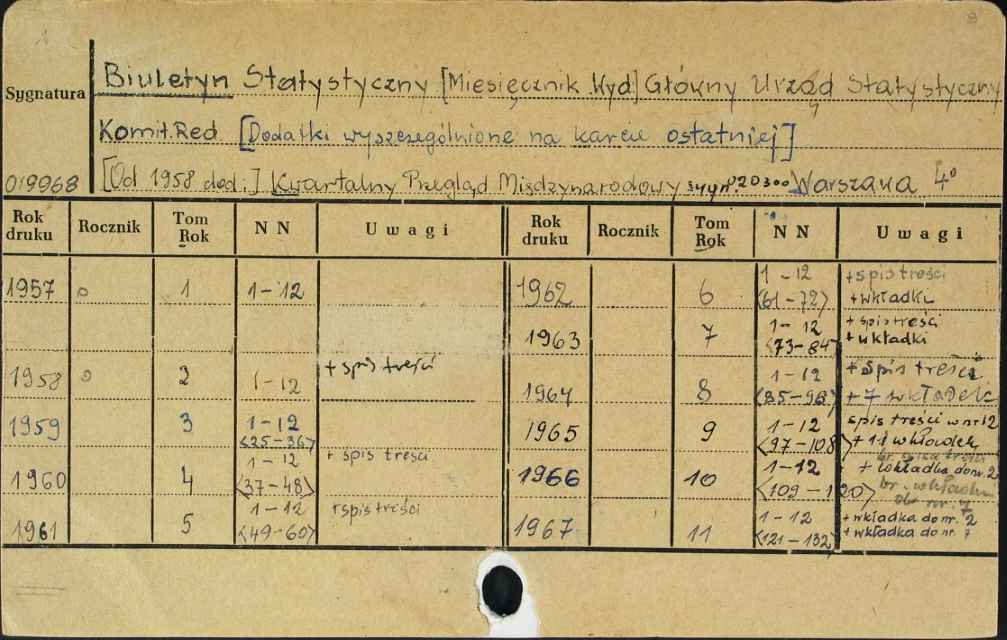 8
Biuletyn Statystyczny [Miesięcznik Wyd] Główny Urząd Statystyczny
Sygnatura
Komit. Red. [Dodatki wyszczególnione na karcie ostatniej]
019968 [Od 1958 dod:] Kwartalny Przegląd Międzynarodowy sygn. P.20300 Warszawa 4°
Rok druku Rocznik Tom Rok NN Uwagi Rok druku Rocznik Tom Rok NN Uwagi
1957 1 1-12
1958 2 1-12 + spis treści
1959 3 1-12 <25-36>
1960 4 1-12 <37-48> + spis treści
1961 5 1-12 <49-60> + spis treści
1962 6 1-12 <61-72> + spis treści + wkładki
1963 7 1-12 <73-84> + spis treści + wkładki
1964 8 1-12 <85-96> + spis treści + 7 wkładek
1965 9 1-12 <97-108> spis treści w nr 12 + 11 wkładek
1966 10 1-12 <109-120> br. spisu treści + wkładka do nr. 2 br. wkładki do nr. 7
1967 11 1-12 <121-132> + wkładka do nr. 2 + wkładka do nr. 7